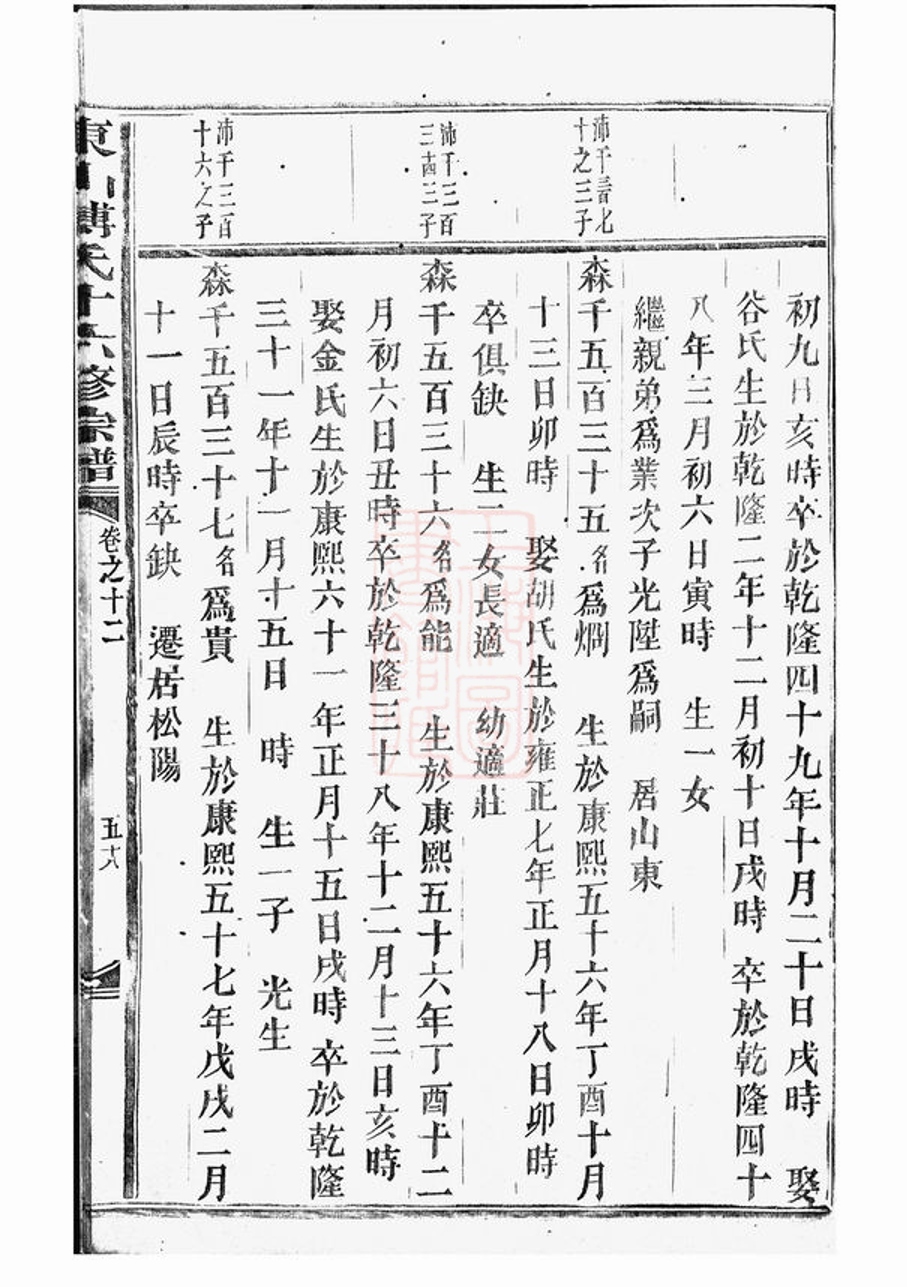 初九日亥時卒於乾隆四十九年十月二十日戌時 娶
谷氏生於乾隆二年十二月初十日戌時 卒於乾隆四十
八年三月初六日寅時 生一女
繼親弟爲業次子光陞爲嗣 居山東
沛千三百七
十之三子
森千五百三十五名爲烱 生於康熙五十六年丁酉十月
十三日卯時 娶胡氏生於雍正七年正月十八日卯時
卒俱缺 生二女長適 幼適莊
沛千三百
三十四三子
森千五百三十六名爲能 生於康熙五十六年丁酉十二
月初六日丑時卒於乾隆三十八年十二月十三日亥時
娶金氏生於康熙六十一年正月十五日戌時卒於乾隆
三十一年十一月十五日 時 生一子 光生
沛千三百
十六之子
森千五百三十七名爲貴 生於康熙五十七年戊戌二月
十一日辰時卒缺 遷居松陽
東山傅氏十六修宗譜
卷之十二
五十八